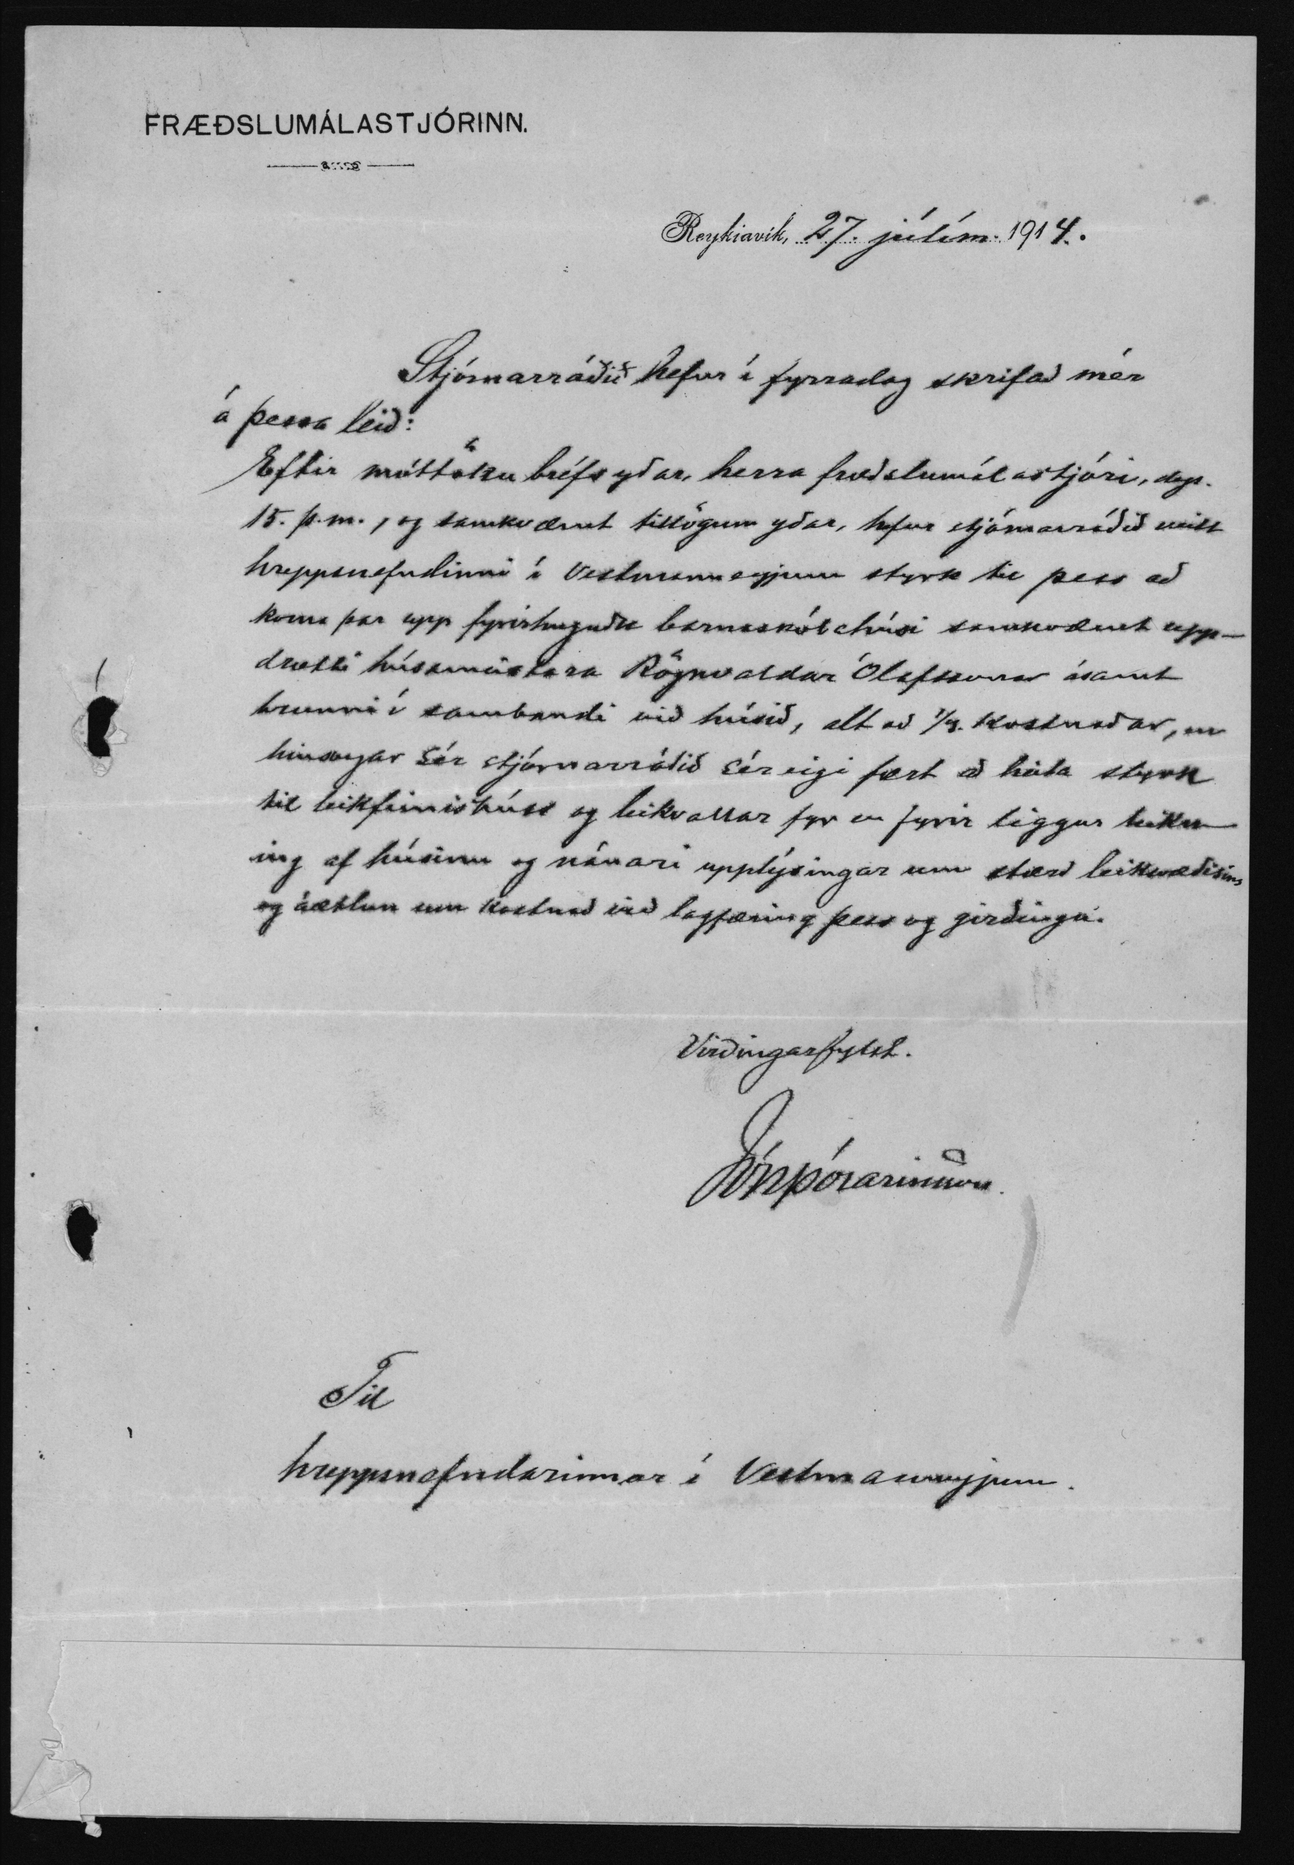 FRÆÐSLUMÁLASTJÓRINN.
Reykiavík, 27. júlím. 1914.
Stjórnarráðið hefur í fyrradag skrifað mér
á þessa leið:
Eftir móttöku bréfs yðar, herra fræðslumálastjóri, dags.
15. þ.m., og samkvæmt tillögum yðar, hefur stjórnarráðið veitt
hreppsnefndinni í Vestmannaeyjum styrk til þess að
koma þar upp fyrirhuguðu barnaskólahúsi samkvæmt upp-
drætti húsameistara Rögnvaldar Ólafssonar ásamt
brunni í sambandi við húsið, alt að 1/3. kostnaðar, en
hinsvegar sér stjórnarráðið sér eigi fært að heita styrk
til leikfimishúss og leikvallar fyr en fyrir liggur teikn-
ing af húsinu og nánari upplýsingar um stærð leiksvæðisins
og áætlun um kostnað við lagfæring þess og girðingu.
Virðingarfylst.
Jón Þórarinsson.
Til
hreppsnefndarinnar í Vestmannaeyjum.